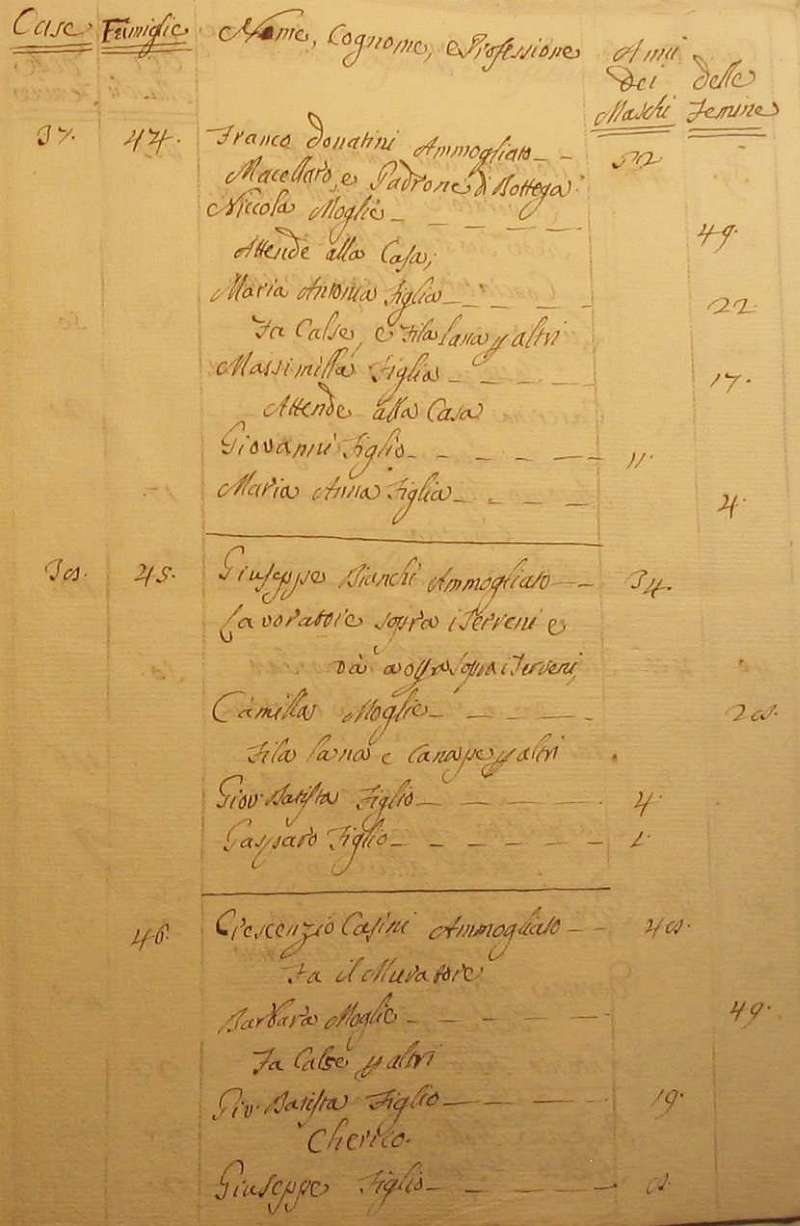 Case Famiglie Nome, Cognome, e Professione Anni
dei delle
Maschi Femine
37. 44. Franco Donatini Ammogliato 52
Macellaro, e Padrone di Bottega
Niccola Moglie 49.
Attende alla Casa,
Maria Antonia Figlia 22
Fa Calse, e Fila lana p altri
Massimilla Figlia 17.
Attende alla Casa
Giovanni Figlio 11.
Maria Anna Figlia 4.
38. 45. Giuseppe Bianchi Ammogliato 34.
Lavoratore sopra i Terreni e
và a opra sopra i Terreni,
Camilla Moglie 28.
Fila lana e Canape p altri
Giov: Batista Figlio 4.
Gasparo Figlio 1.
46. Crescenzio Casini Ammogliato 48.
Fa il Muratore
Barbara Moglie 49.
Fa Calse p altri
Gio: Batista Figlio 19.
Cherico.
Giuseppe Figlio 8.